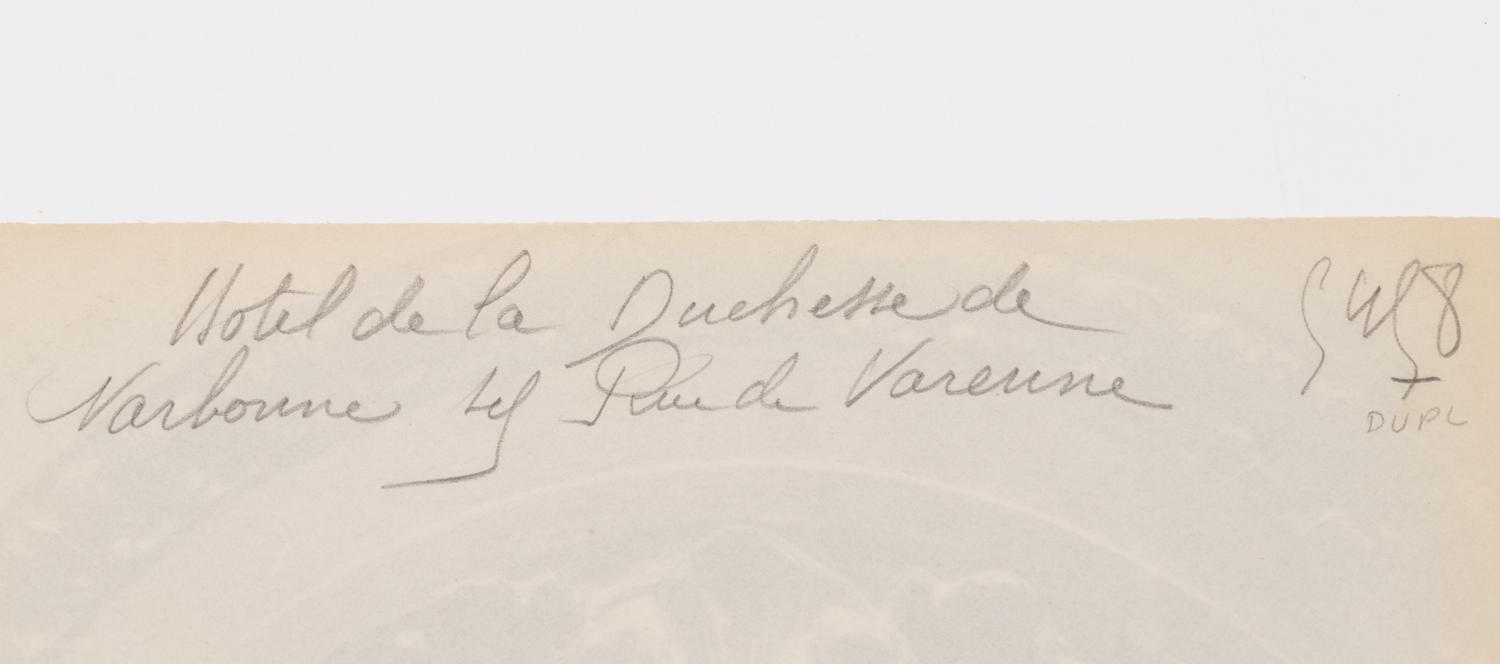 Hotel de la Duchesse de
Narbonne 45 Rue de Varenne
DUPL